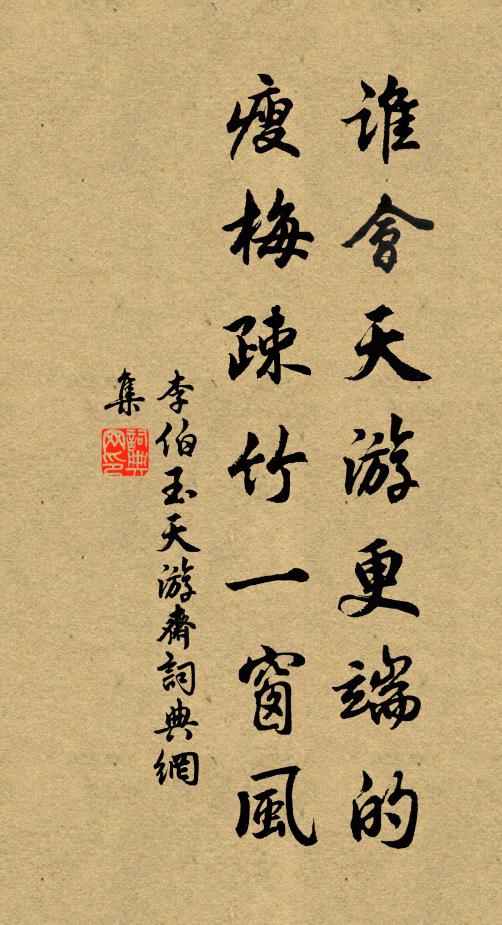 誰會天游更端的
瘦梅疎竹一窗風
李伯玉天游齋詞典網
集
詞典
网印